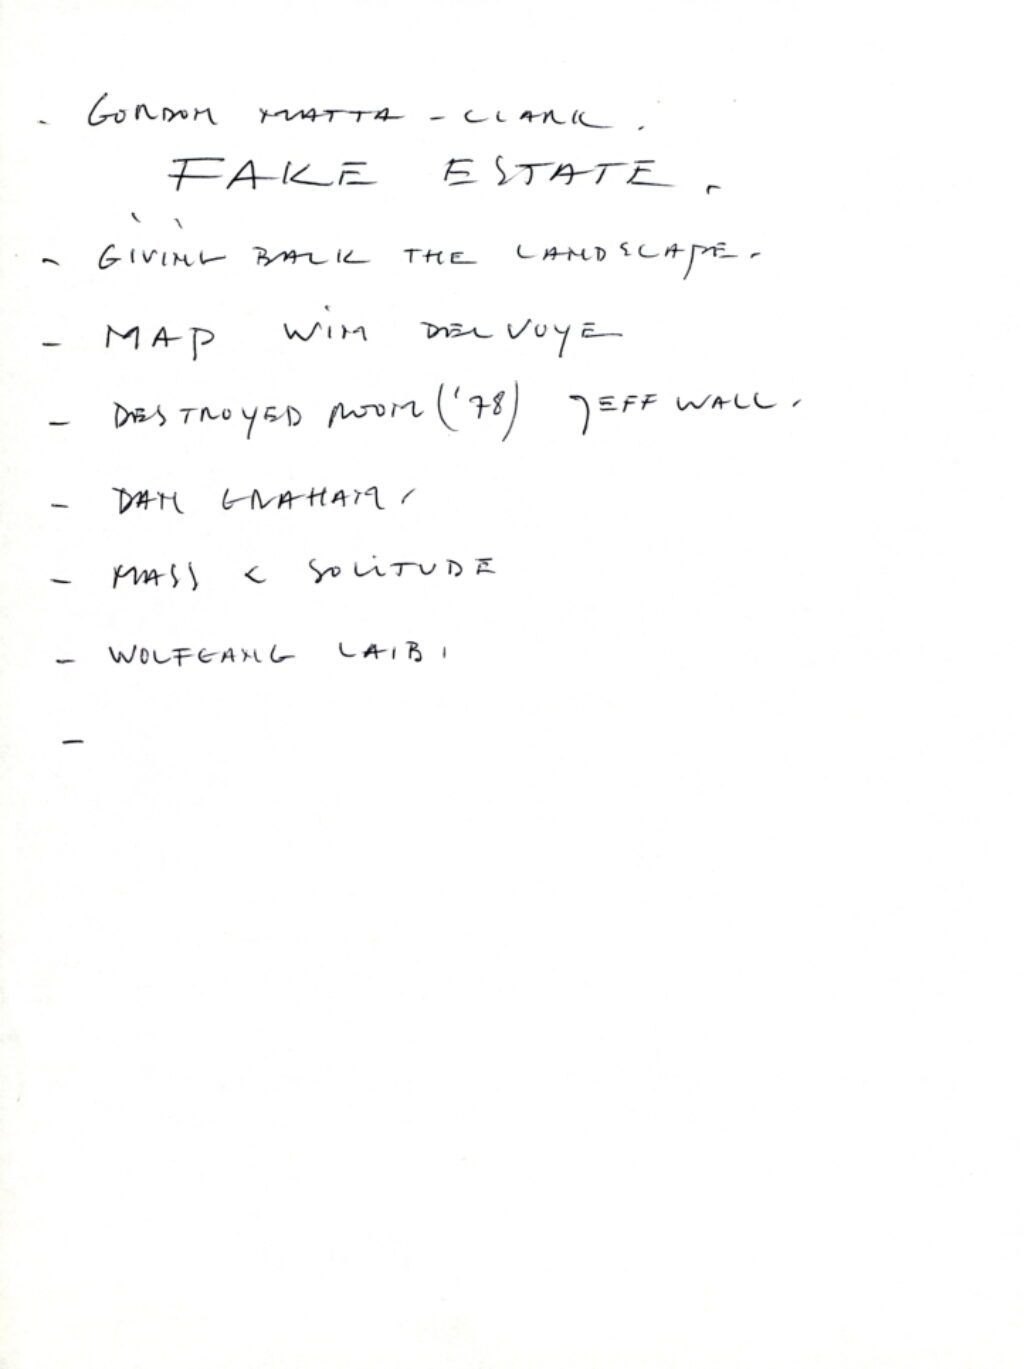 - GORDON MATTA-CLARK.
FAKE ESTATE.
- GIVING BACK THE LANDSCAPE.
- MAP WIM DELVOYE
- DESTROYED ROOM ('78) JEFF WALL.
- DAN GRAHAM.
- MASS < SOLITUDE
- WOLFGANG LAIB.
-